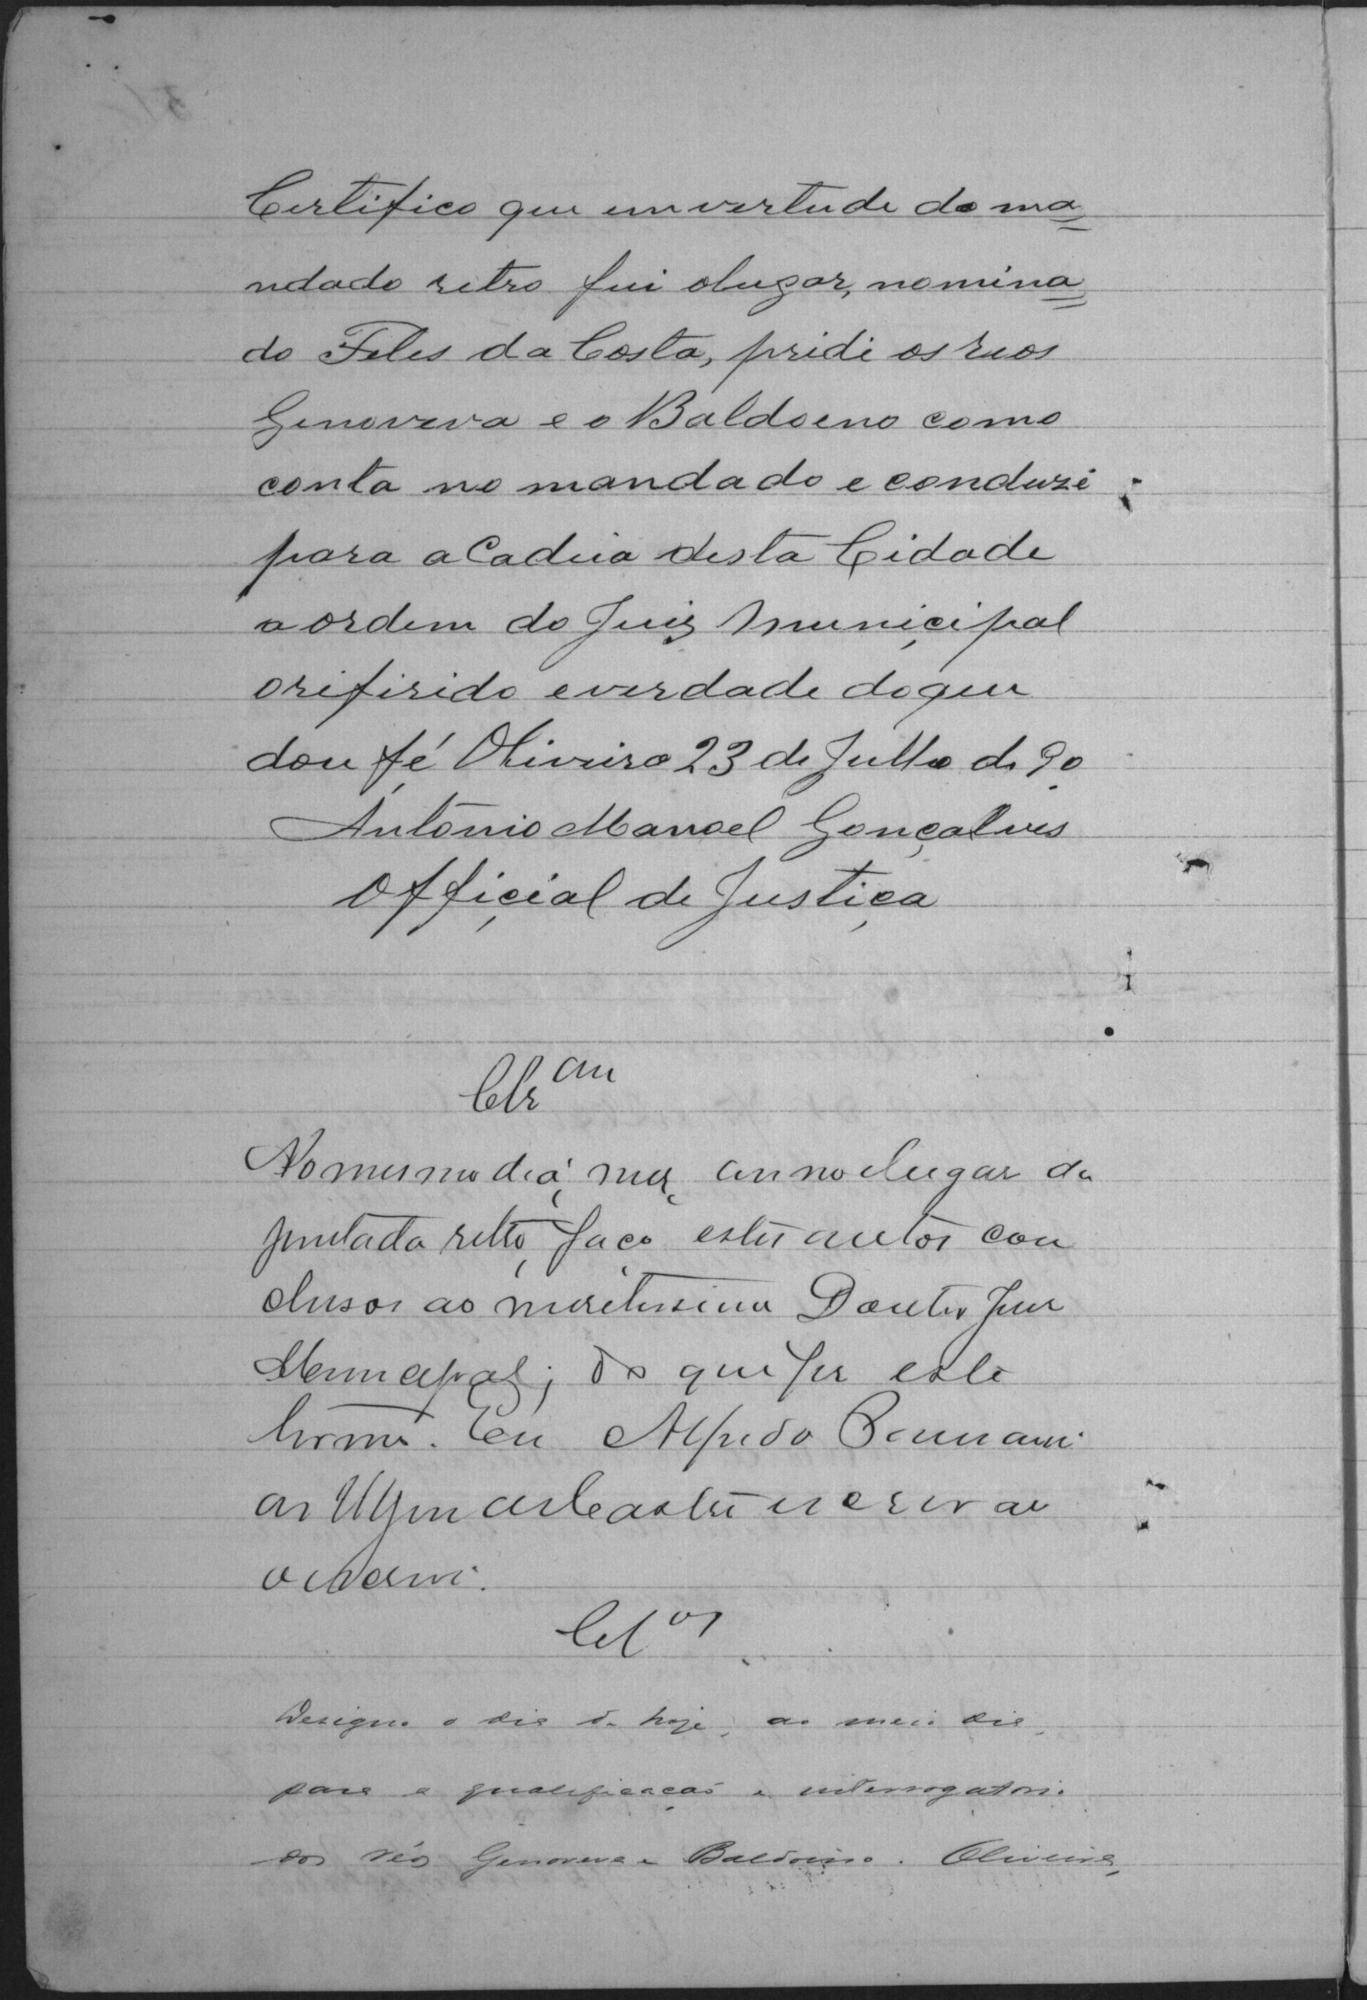 Certifico que em vertude do ma=
ndado retro fui olugar, nomina=
do Feles da Costa, pridi os reos
Genoveva e o Baldoeno como
conta no mandado e conduzi
para a Cadeia desta Cidade
a ordem do Juiz Municipal
orifirido e verdade do que
dou fé Oliveira 23 de Julho de 90
Antonio Manoel Gonçalves
Official de Justiça
Clsam
No mesmo dia, mez, anno e lugar da
juntada retro, faço estes autos con
clusos ao meretissimo Doutor Juiz
Municipal; do que fiz este
termo. Eu Alfredo
Castro escrivao
o escrevi.
Clos
Designo o dia de hoje, ao meio dia,
para a qualificação e interrogatorio
dos réos Genoveva e Baldoino. Oliveira,